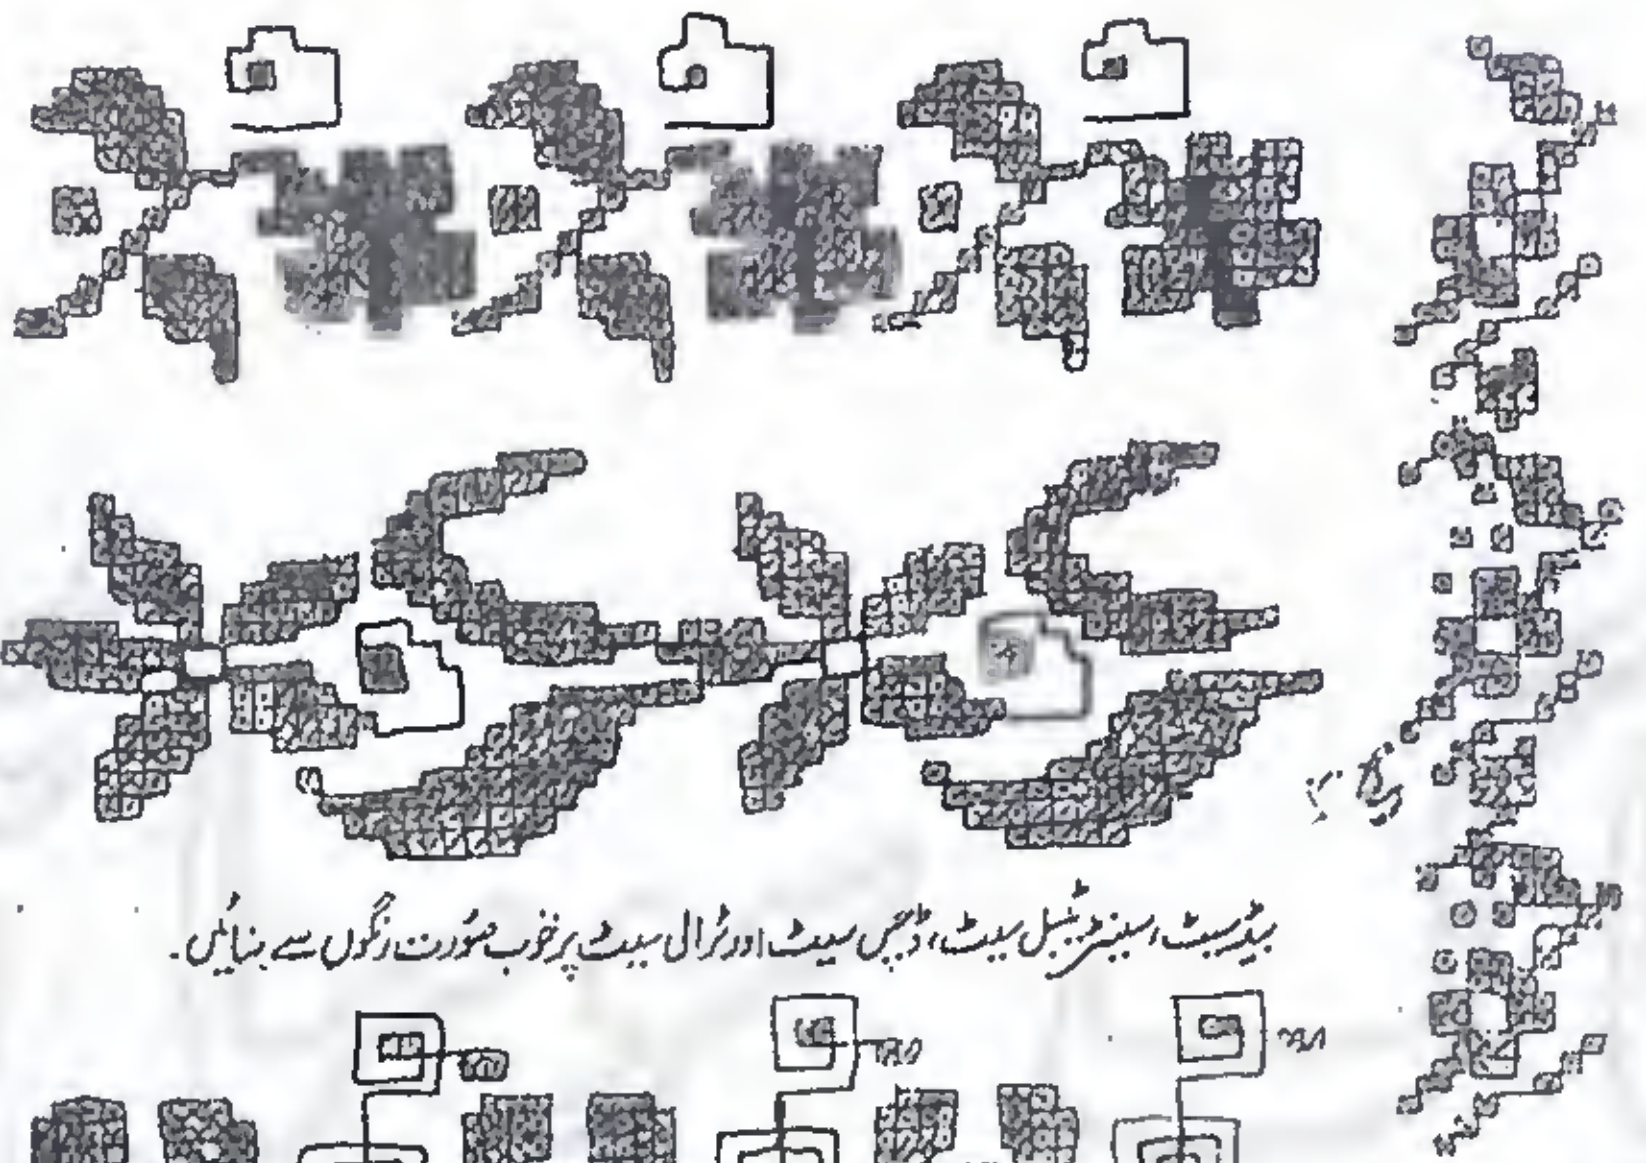 بیڈ سیٹ، سینٹر ٹیبل سیٹ، ڈچس سیٹ اور ٹرالی سیٹ پر خوب صورت رنگوں سے بنائیں۔